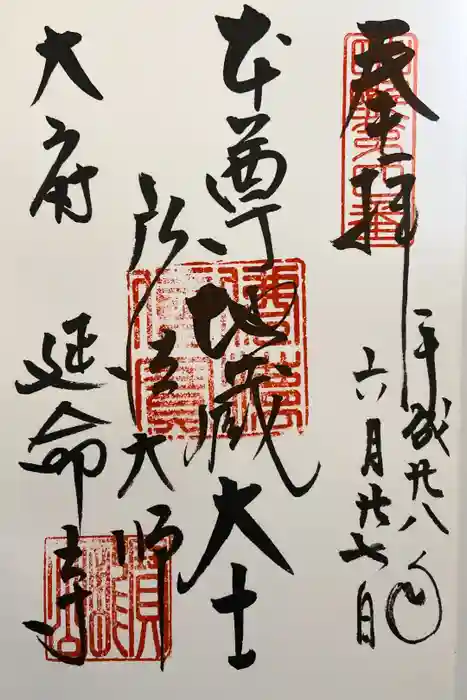 奉拝
平成廿八年
六月廿七日
本尊地蔵大士
弘法大師
大府 延命寺